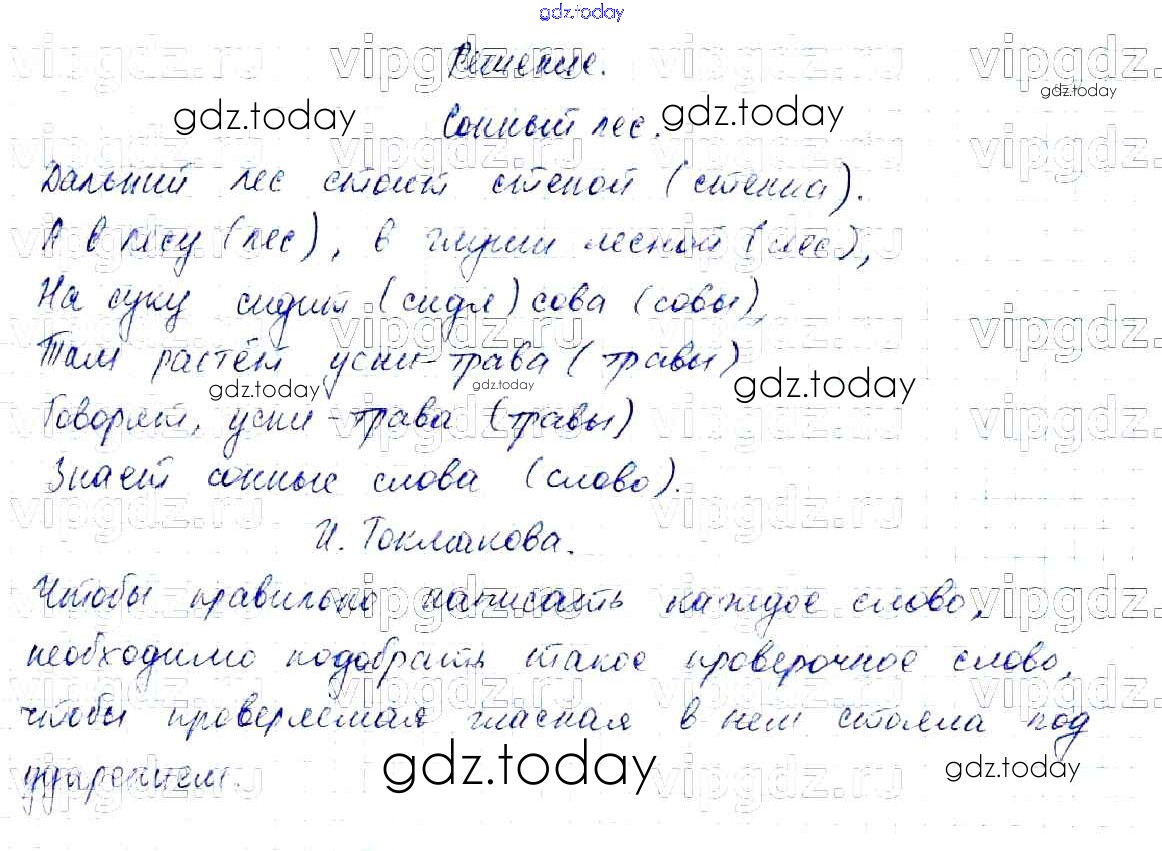 gdz.today
Решение.
Сонный лес.
Дальний лес стоит стеной (стенка).
А в лесу (лес), в глуши лесной (лес),
На суку сидит (сидя) сова (совы),
Там растёт усни-трава (травы)
Говорят, усни-трава (травы)
Знает сонные слова (слово).
И. Токмакова.
Чтобы правильно написать каждое слово,
необходимо подобрать такое проверочное слово,
чтобы проверяемая гласная в нем стояла под
ударением.
gdz.today
gdz.today
gdz.today
gdz.today
gdz.today
gdz.today
gdz.today
gdz.today
vipgdz.ru